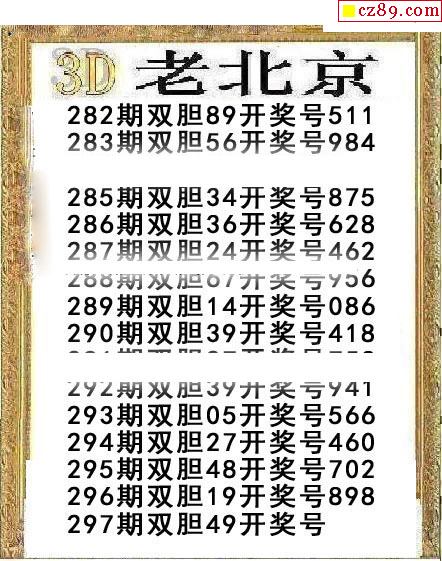 cz89.com
3D 老北京
282期双胆89开奖号511
283期双胆56开奖号984
285期双胆34开奖号875
286期双胆36开奖号628
287期双胆24开奖号462
288期双胆67开奖号956
289期双胆14开奖号086
290期双胆39开奖号418
292期双胆39开奖号941
293期双胆05开奖号566
294期双胆27开奖号460
295期双胆48开奖号702
296期双胆19开奖号898
297期双胆49开奖号